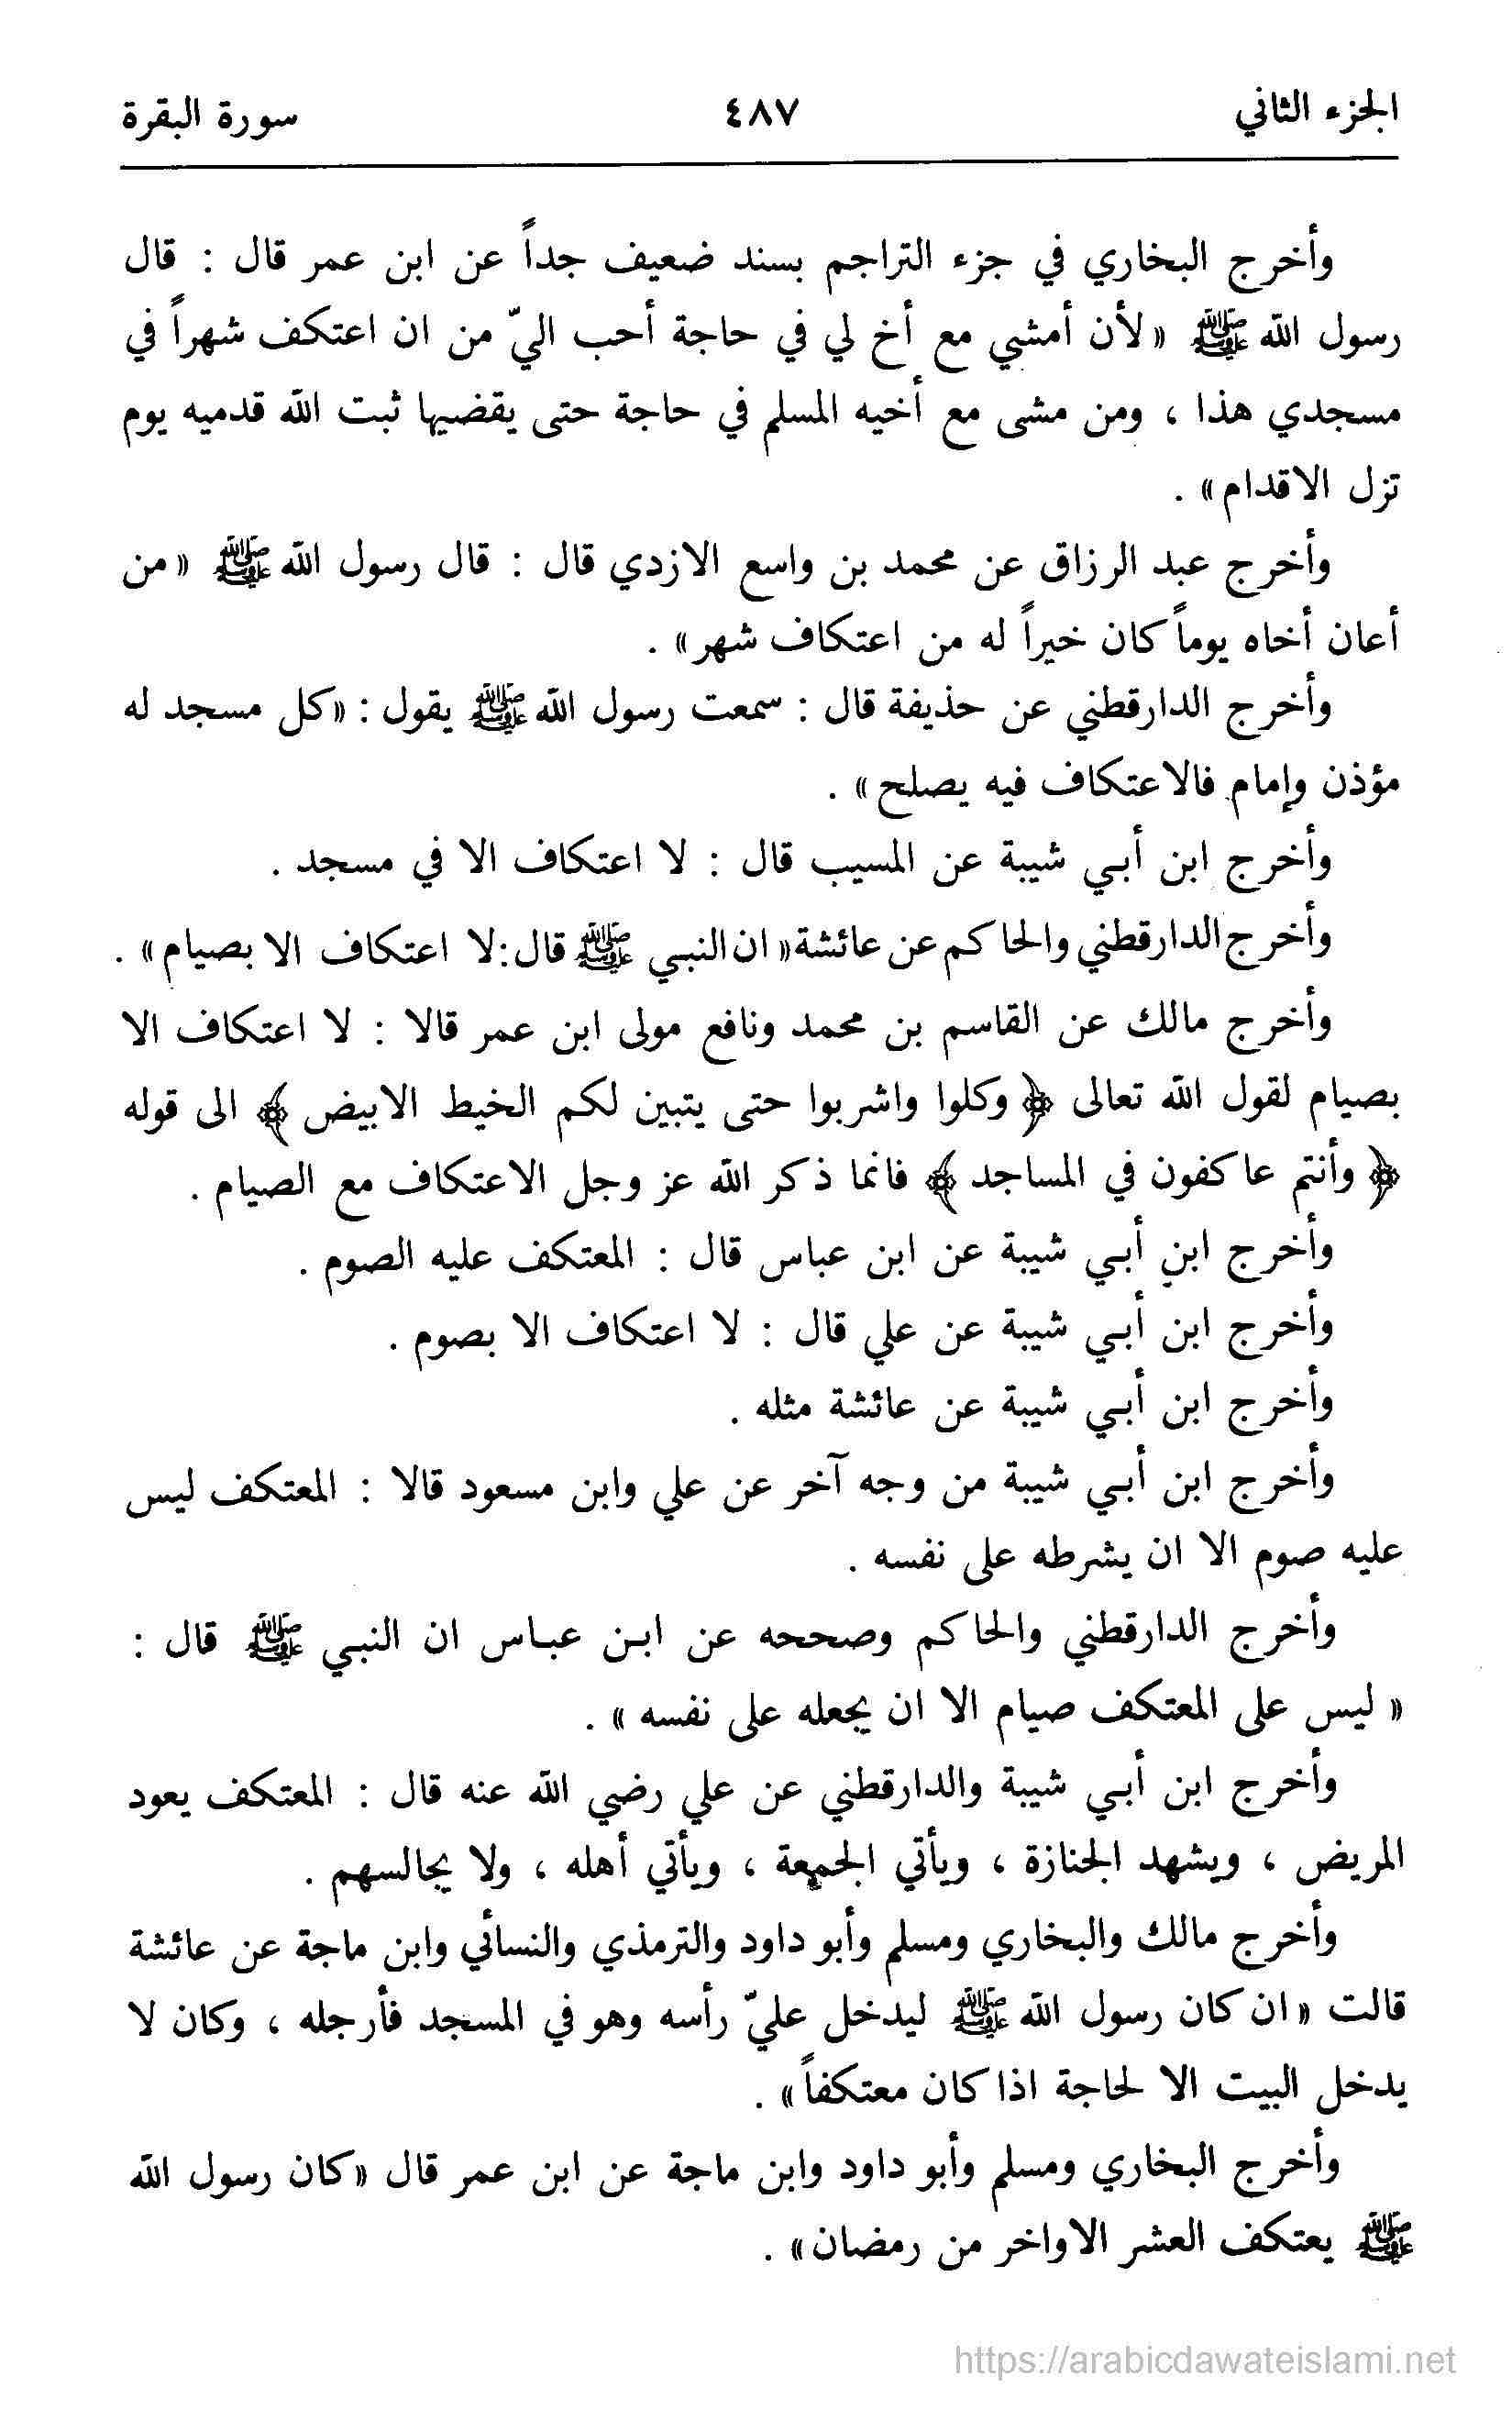 الجزء الثاني ٤٨٧ سورة البقرة
وأخرج البخاري في جزء التراجم بسند ضعيف جداً عن ابن عمر قال : قال
رسول الله ﷺ «لأن أمشي مع أخ لي في حاجة أحب اليّ من ان اعتكف شهراً في
مسجدي هذا ، ومن مشى مع أخيه المسلم في حاجة حتى يقضيها ثبت الله قدميه يوم
تزل الاقدام» .
وأخرج عبد الرزاق عن محمد بن واسع الازدي قال : قال رسول الله ﷺ «من
أعان أخاه يوماً كان خيراً له من اعتكاف شهر» .
وأخرج الدارقطني عن حذيفة قال : سمعت رسول الله ﷺ يقول : «كل مسجد له
مؤذن وإمام فالاعتكاف فيه يصلح» .
وأخرج ابن أبي شيبة عن المسيب قال : لا اعتكاف الا في مسجد .
وأخرج الدارقطني والحاكم عن عائشة «ان النبي ﷺ قال: لا اعتكاف الا بصيام» .
وأخرج مالك عن القاسم بن محمد ونافع مولى ابن عمر قالا : لا اعتكاف الا
بصيام لقول الله تعالى ﴿ وكلوا واشربوا حتى يتبين لكم الخيط الابيض ﴾ الى قوله
﴿ وأنتم عاكفون في المساجد ﴾ فانما ذكر الله عز وجل الاعتكاف مع الصيام .
وأخرج ابن أبي شيبة عن ابن عباس قال : المعتكف عليه الصوم .
وأخرج ابن أبي شيبة عن علي قال : لا اعتكاف الا بصوم .
وأخرج ابن أبي شيبة عن عائشة مثله .
وأخرج ابن أبي شيبة من وجه آخر عن علي وابن مسعود قالا : المعتكف ليس
عليه صوم الا ان يشرطه على نفسه .
وأخرج الدارقطني والحاكم وصححه عن ابن عباس ان النبي ﷺ قال :
« ليس على المعتكف صيام الا ان يجعله على نفسه » .
وأخرج ابن أبي شيبة والدارقطني عن علي رضي الله عنه قال : المعتكف يعود
المريض ، ويشهد الجنازة ، ويأتي الجمعة ، ويأتي أهله ، ولا يجالسهم .
وأخرج مالك والبخاري ومسلم وأبو داود والترمذي والنسائي وابن ماجة عن عائشة
قالت «ان كان رسول الله ﷺ ليدخل عليّ رأسه وهو في المسجد فأرجله ، وكان لا
يدخل البيت الا لحاجة اذا كان معتكفاً» .
وأخرج البخاري ومسلم وأبو داود وابن ماجة عن ابن عمر قال «كان رسول الله
ﷺ يعتكف العشر الاواخر من رمضان» .
https://arabicdawateislami.net